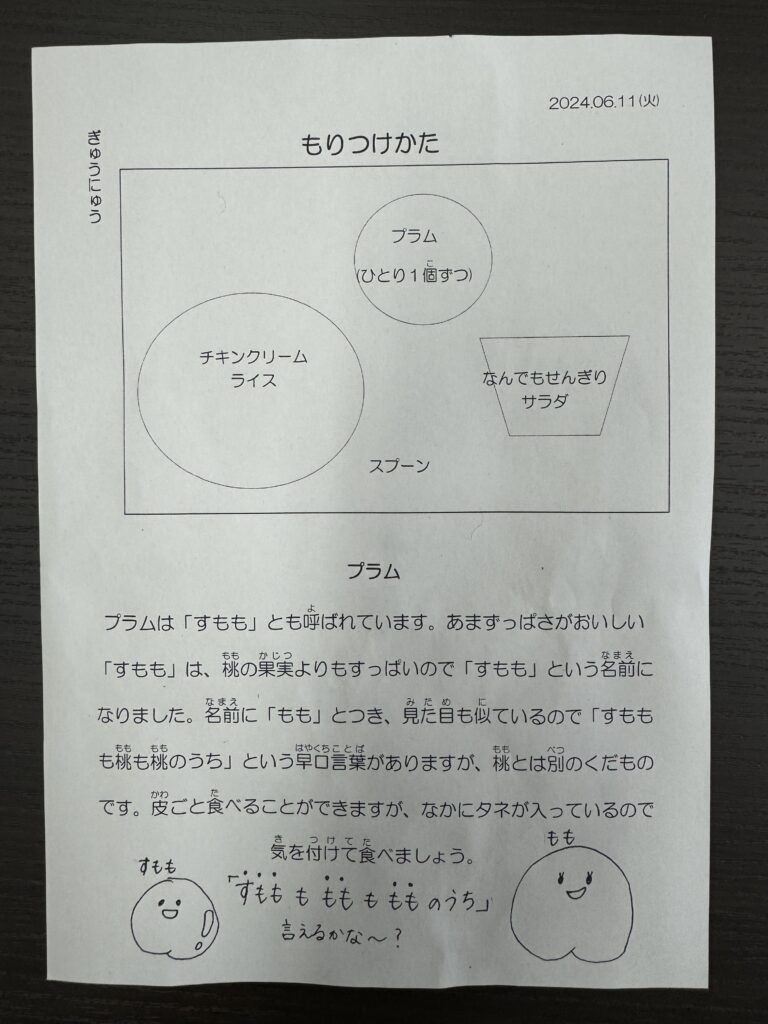 2024.06.11(火)
もりつけかた
ぎゅうにゅう
プラム
(ひとり1個ずつ)
チキンクリーム
ライス
なんでもせんぎり
サラダ
スプーン
プラム
プラムは「すもも」とも呼ばれています。あまずっぱさがおいしい
「すもも」は、桃の果実よりもすっぱいので「すもも」という名前に
なりました。名前に「もも」とつき、見た目も似ているので「すもも
も桃も桃のうち」という早口言葉がありますが、桃とは別のくだもの
です。皮ごと食べることができますが、なかにタネが入っているので
気を付けて食べましょう。
すもも
もも
「すもも も もも も もも のうち」
言えるかな〜?